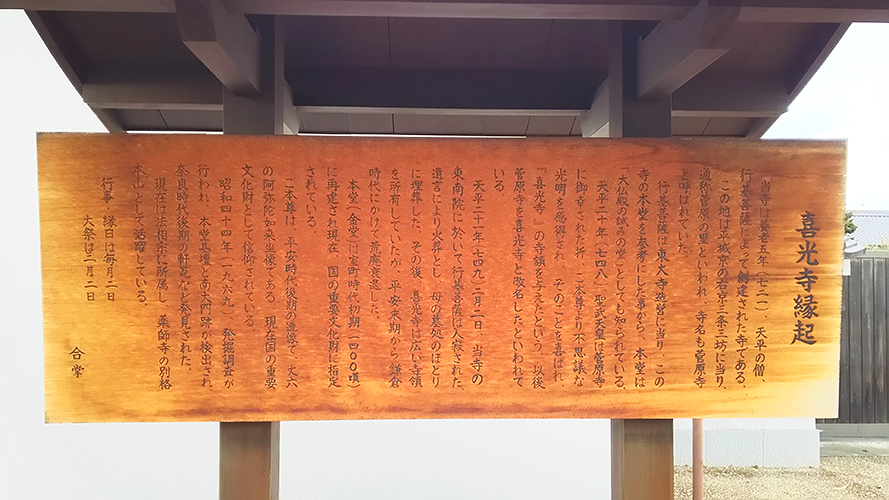 喜光寺縁起
当寺は養老五年(七二一)、天平の僧、
行基菩薩によって創建された寺である。
この地は平城京の右京三条三坊に当り、
通称菅原の里といわれ、寺名も菅原寺
と呼ばれていた。
行基菩薩は東大寺造営に当り、この
寺の本堂を参考にした事から、本堂は
「大仏殿の試みの堂」としても知られている。
天平二十年(七四八)聖武天皇は菅原寺
に御幸された折、ご本尊より不思議な
光明を感得され、そのことを喜ばれ、
『喜光寺』の寺額を与えたという。以後
菅原寺を喜光寺と改名したといわれて
いる。
天平二十一年(七四九)二月二日、当寺の
東南院に於いて行基菩薩は入寂された。
遺言により火葬とし、母の墓処のほとり
に埋葬した。その後、喜光寺は広い寺領
を所有していたが、平安末期から鎌倉
時代にかけて荒廃衰退した。
本堂(金堂)は室町時代初期(一四〇〇頃)
に再建され現在、国の重要文化財に指定
されている。
ご本尊は、平安時代後期の造像で、丈六
の阿弥陀如来坐像である。現在国の重要
文化財として信仰されている。
昭和四十四年(一九六九)、発掘調査が
行われ、本堂基壇と南大門跡が検出され、
奈良時代後期の軒瓦など発見された。
現在は法相宗に所属し、薬師寺の別格
本山として活躍している。
行事 縁日は毎月二日
大祭は三月二日
合掌